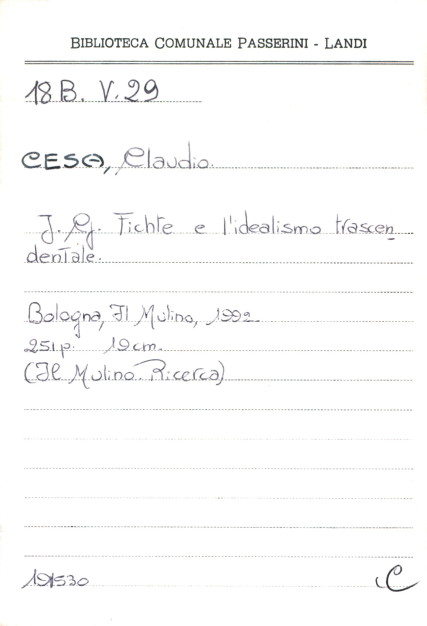 BIBLIOTECA COMUNALE PASSERINI - LANDI
18 B. V. 29
CESA, Claudio.
J. G. Fichte e l'idealismo trascen
dentale.
Bologna, Il Mulino, 1992.
251 p. 19 cm.
(Il Mulino. Ricerca)
191530
C